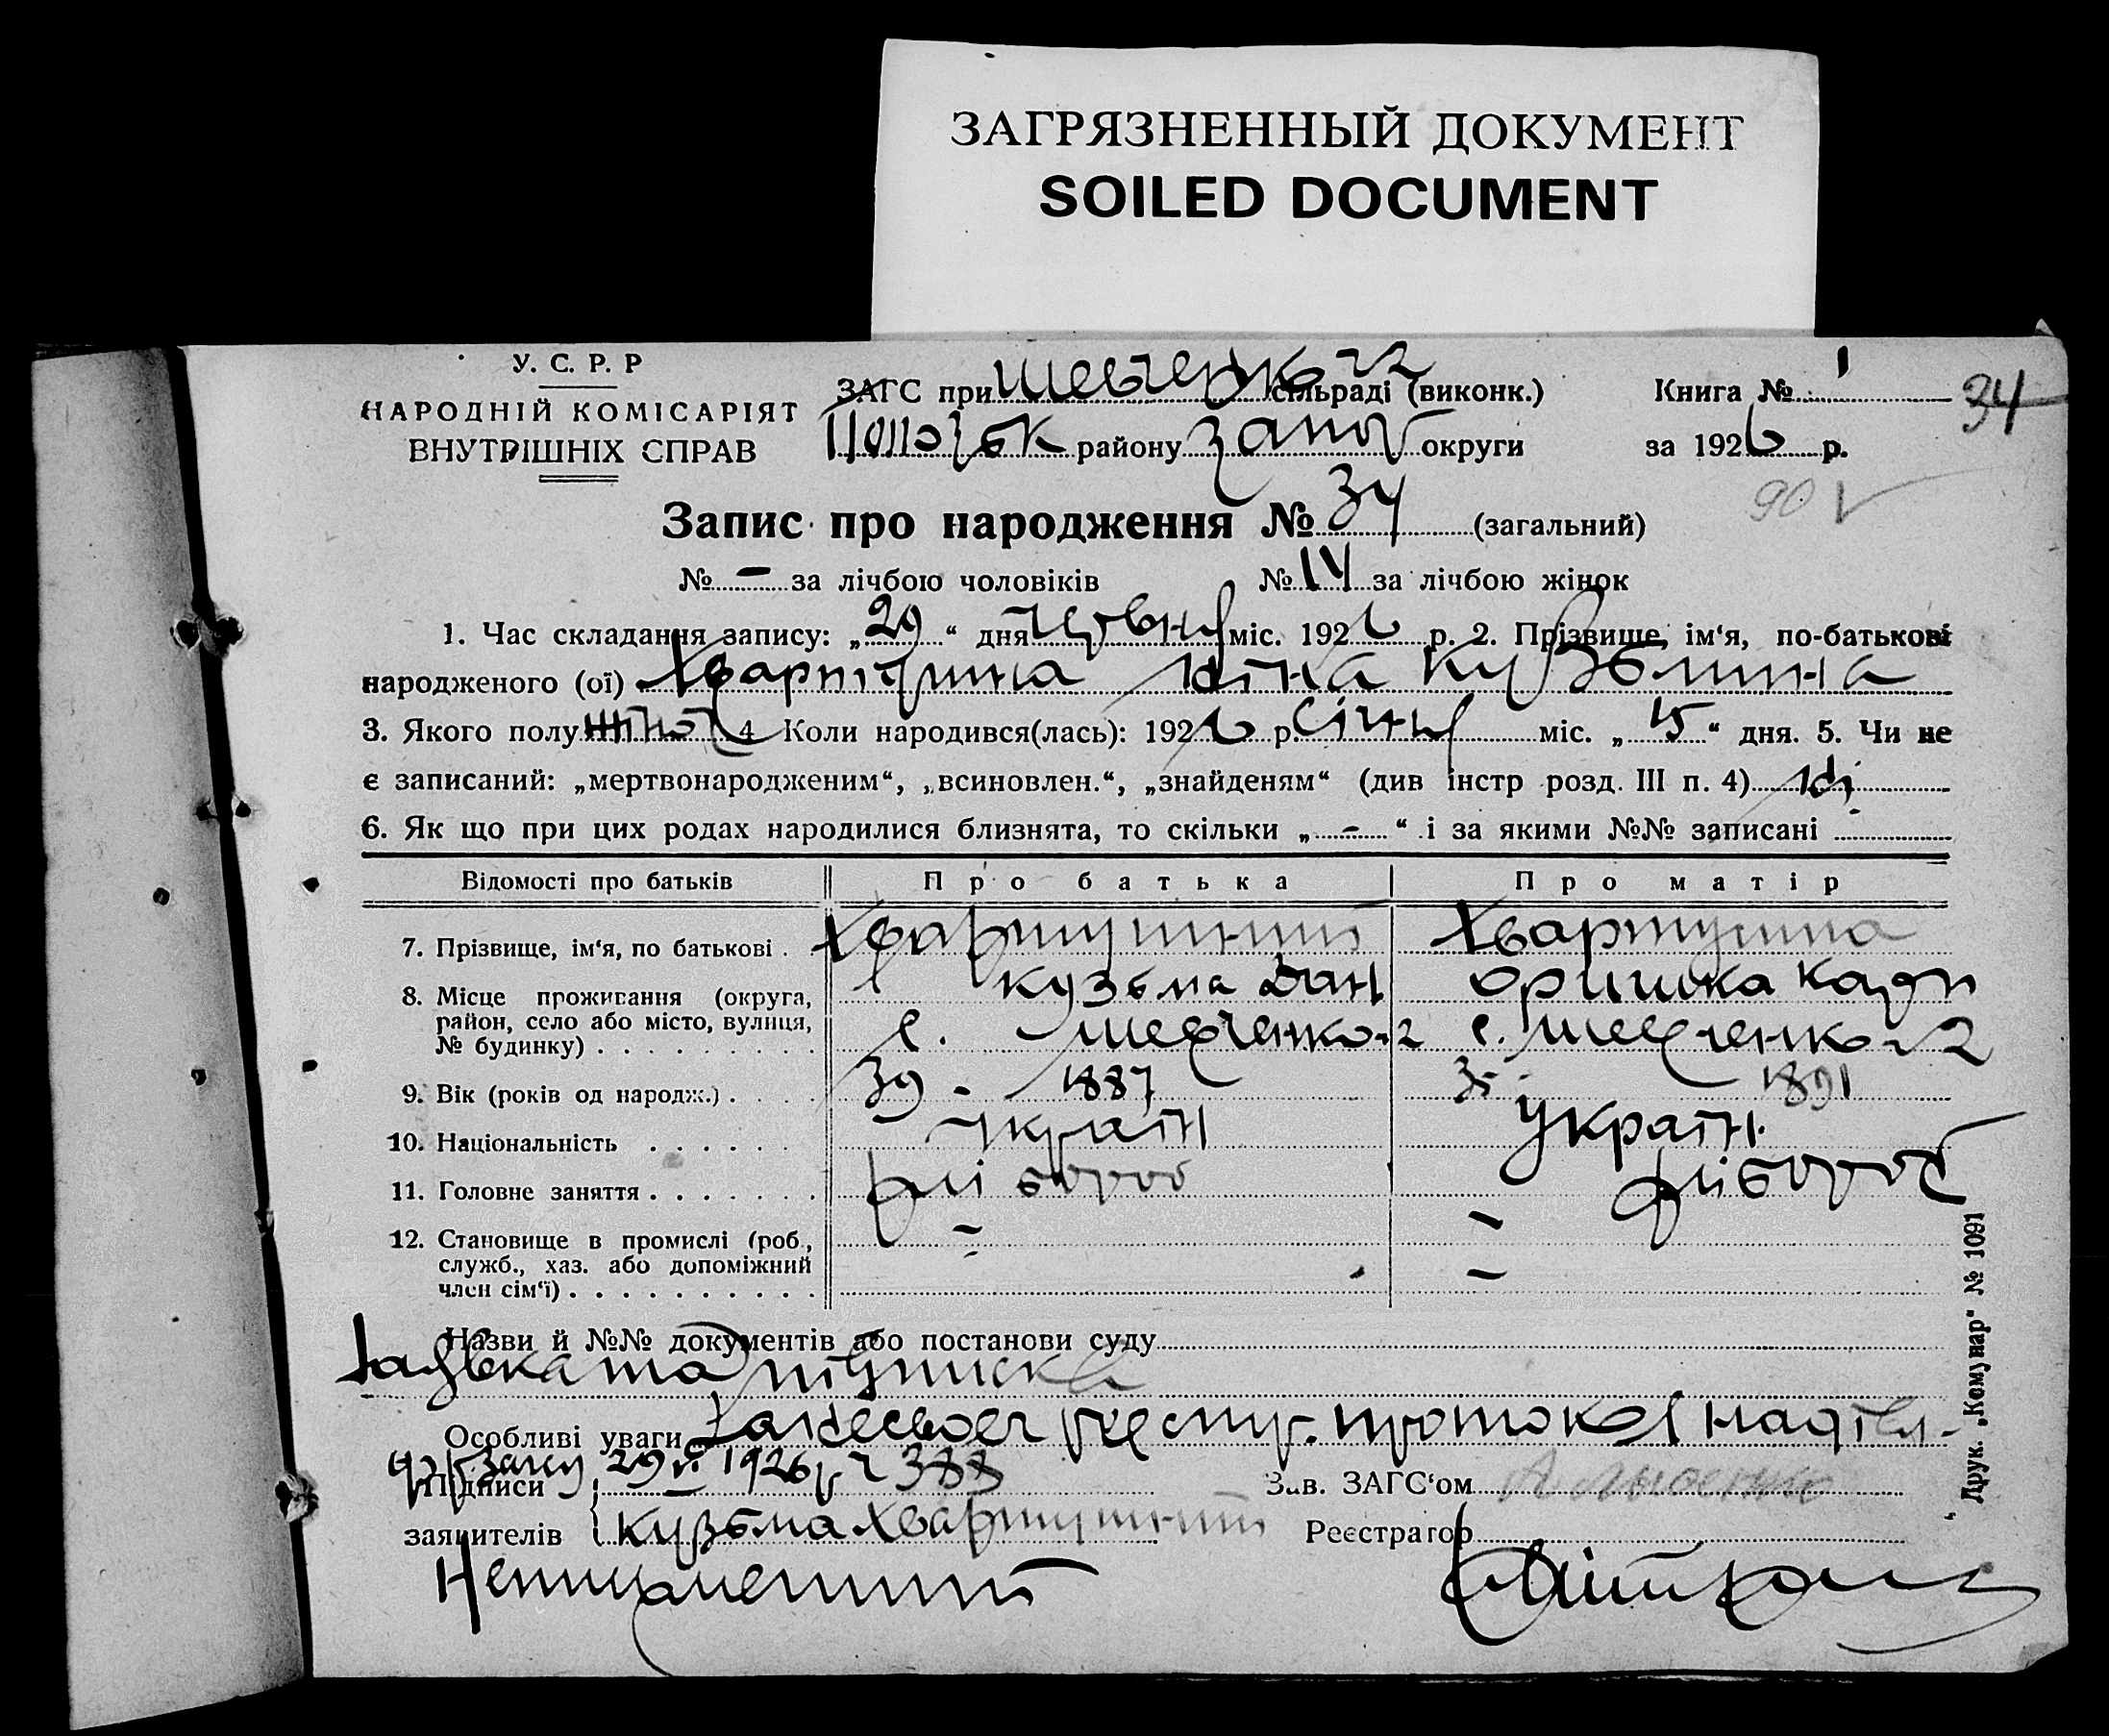 ЗАГРЯЗНЕННЫЙ ДОКУМЕНТ
SOILED DOCUMENT
У. С. Р. Р
НАРОДНІЙ КОМІСАРІЯТ
ВНУТРІШНІХ СПРАВ
ЗАГС при Шевченко 2 сільраді (виконк.)
району Запор округи
Книга № 1
за 1926 р.
34
90
Запис про народження № 34 (загальний)
№ - за лічбою чоловіків № 14 за лічбою жінок
1. Час складання запису: „29“ дня червня міс. 1926 р. 2. Прізвище, ім‘я, по-батькові
народженого (ої) Ніна Кузьмина
3. Якого полу жіноч 4 Коли народився(лась): 1926 р. січня міс. „15“ дня. 5. Чи не
є записаний: „мертвонародженим“, „всиновлен.“, „знайденям“ (див інстр розд. III п. 4) Ні
6. Як що при цих родах народилися близнята, то скільки „-“ і за якими №№ записані
Відомості про батьків Про батька Про матір
7. Прізвище, ім‘я, по батькові Хвартушний Хвартушна
Кузьма Дан Оришка
8. Місце проживання (округа, район, село або місто, вулиця, № будинку) с. Шевченко-2 с. Шевченко 2
9. Вік (років од народж.) 39 - 1887 35 - 1891
10. Національність Україн Україн.
11. Головне заняття хлібороб хлібороб
12. Становище в промислі (роб., служб., хаз. або допоміжний член сім‘ї) - -
Назви й №№ документів або постанови суду
Заявка та підписка
Особливі уваги протокол
Загсу 29/VI 1926 р ч 388
Підписи заявителів Кузьма Хвартушний
Зав. ЗАГС‘ом
Реєстратор
Неписьменний
Друк. „Комунар“ № 1091